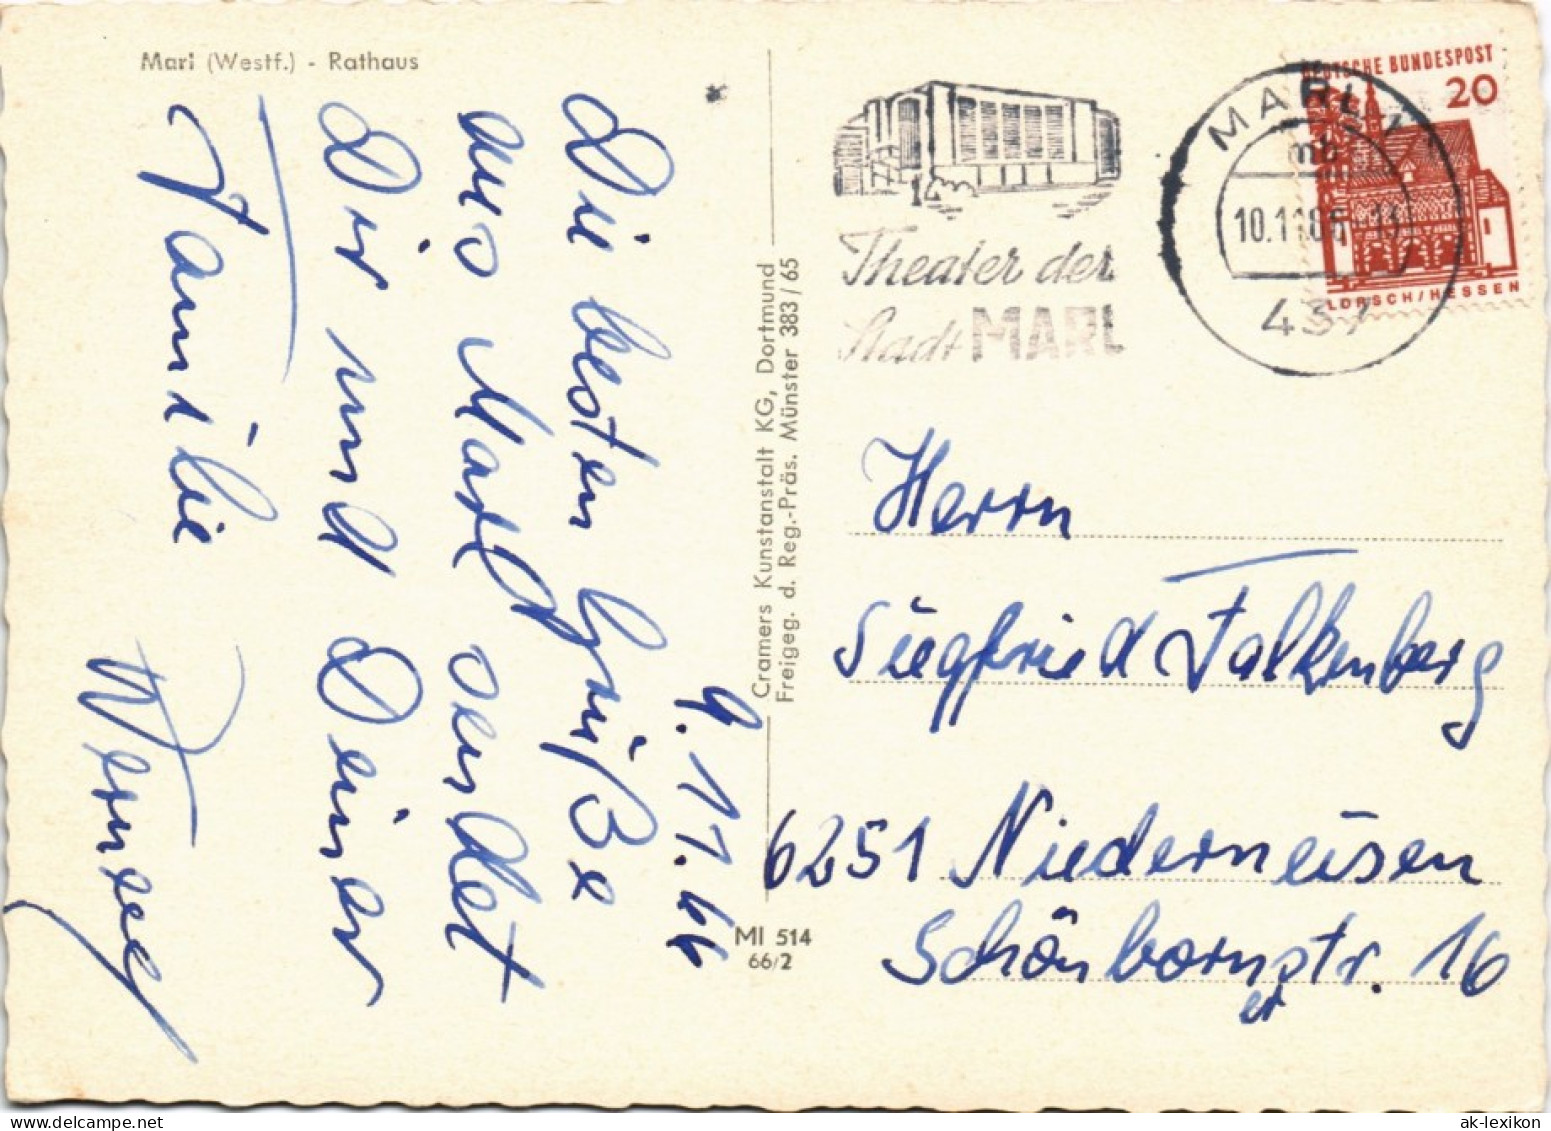 Marl (Westf.) - Rathaus
9.11.66
Die besten Grüße
aus Marl sendet
Dir und Deiner
Familie
Cramers Kunstanstalt KG, Dortmund
Freigeg. d. Reg.-Präs. Münster 383/65
MI 514
66/2
Theater der
Stadt MARL
MARL 1
mb
437
DEUTSCHE BUNDESPOST
20
LORSCH/HESSEN
Herrn
Siegfried Falkenberg
6251 Niederneisen
Schönbornstr. 16
er
ak-lexikon